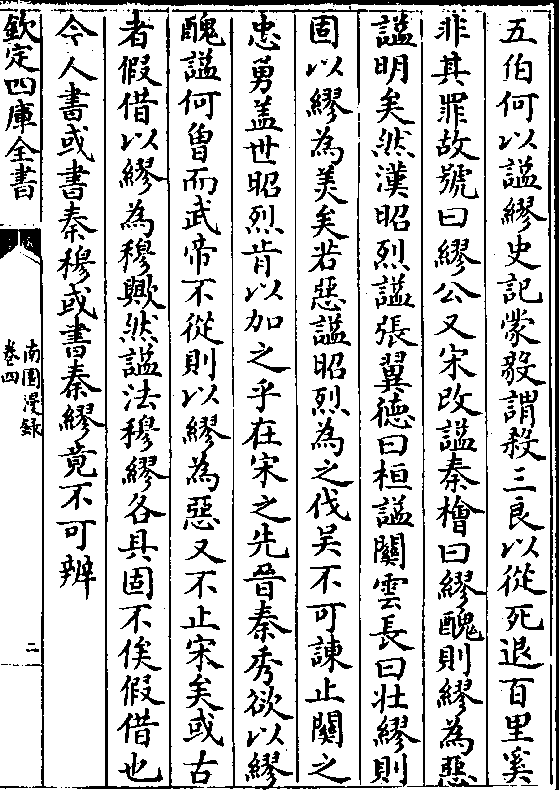 五伯何以諡繆史記蒙毅謂殺三良以從死退百里奚
非其罪故號曰繆公又宋改諡秦檜曰繆醜則繆為惡
諡明矣然漢昭烈諡張翼德曰桓諡關雲長曰壯繆則
固以繆為美矣若惡諡昭烈為之伐吳不可諫止關之
忠勇盖世昭烈肯以加之乎在宋之先晉秦秀欲以繆
醜諡何曾而武帝不從則以繆為惡又不止宋矣或古
者假借以繆為穆歟然諡法穆繆各具固不俟假借也
今人書或書秦穆或書秦繆竟不可辨
欽定四庫全書
南園漫錄
卷四
二